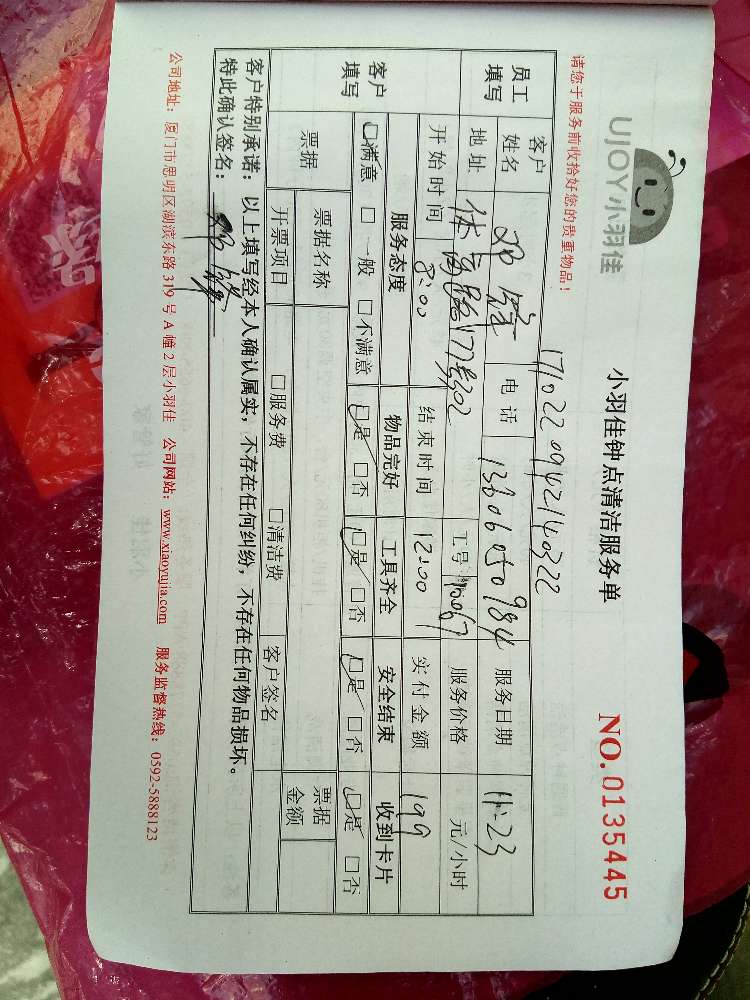 UJOY小羽佳
小羽佳钟点清洁服务单
NO.0135445
请您于服务前收拾好您的贵重物品！
1710220942140322
员工填写
客户姓名
电话 13606050984
服务日期 11.23
地址 体育路
工号
服务价格 元/小时
开始时间 8:00
结束时间 12:00
实付金额 199
客户填写
服务态度 物品完好 工具齐全 安全结束 收到卡片
☑满意 □一般 □不满意 ☑是 □否 ☑是 □否 ☑是 □否 ☑是 □否
票据
票据名称
票据金额
开票项目 □服务费 □清洁费 客户签名
客户特别承诺：以上填写经本人确认属实，不存在任何纠纷，不存在任何物品损坏。
特此确认签名：
公司地址：厦门市思明区湖滨东路319号A幢2层小羽佳 公司网站：www.xiaoyujia.com 服务监督热线：0592-5888123